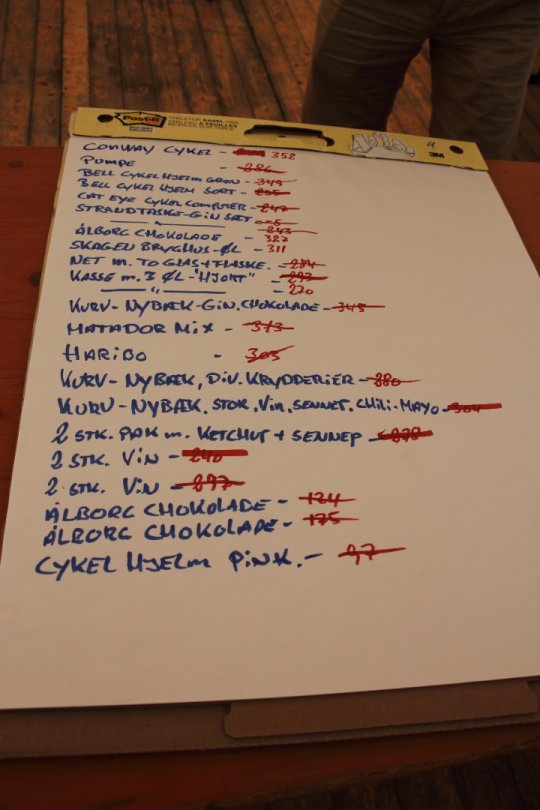 Post-it
TABLETOP EASEL PAD
TABLEAU À FEUILLES
3M
CONWAY CYKEL - 352
PUMPE - 286
BELL CYKELHJELM GRØN - 349
BELL CYKEL HJELM SORT -
CAT EYE CYKEL COMPUTER - 247
STRANDTASKE-GIN SÆT
— " — 243
ÅLBORG CHOKOLADE - 327
SKAGEN BRYGHUS-ØL - 311
NET m. TO GLAS + FLASKE. - 284
KASSE m. 3 ØL - "HJORT" - 293
— " — - 270
KURV - NYBÆK-GIN. CHOKOLADE - 345
MATADOR MIX - 313
HARIBO - 305
KURV - NYBÆK, DIV. KRYDDERIER - 280
KURV - NYBÆK. STOK. Vin. SENNEP. CHILI-MAYO - 304
2 STK. PAK m. KETCHUP + SENNEP - 278
2 STK. VIN - 240
2 STK. VIN - 297
ÅLBORG CHOKOLADE - 124
ÅLBORG CHOKOLADE - 175
CYKEL HJELM PINK. - 97